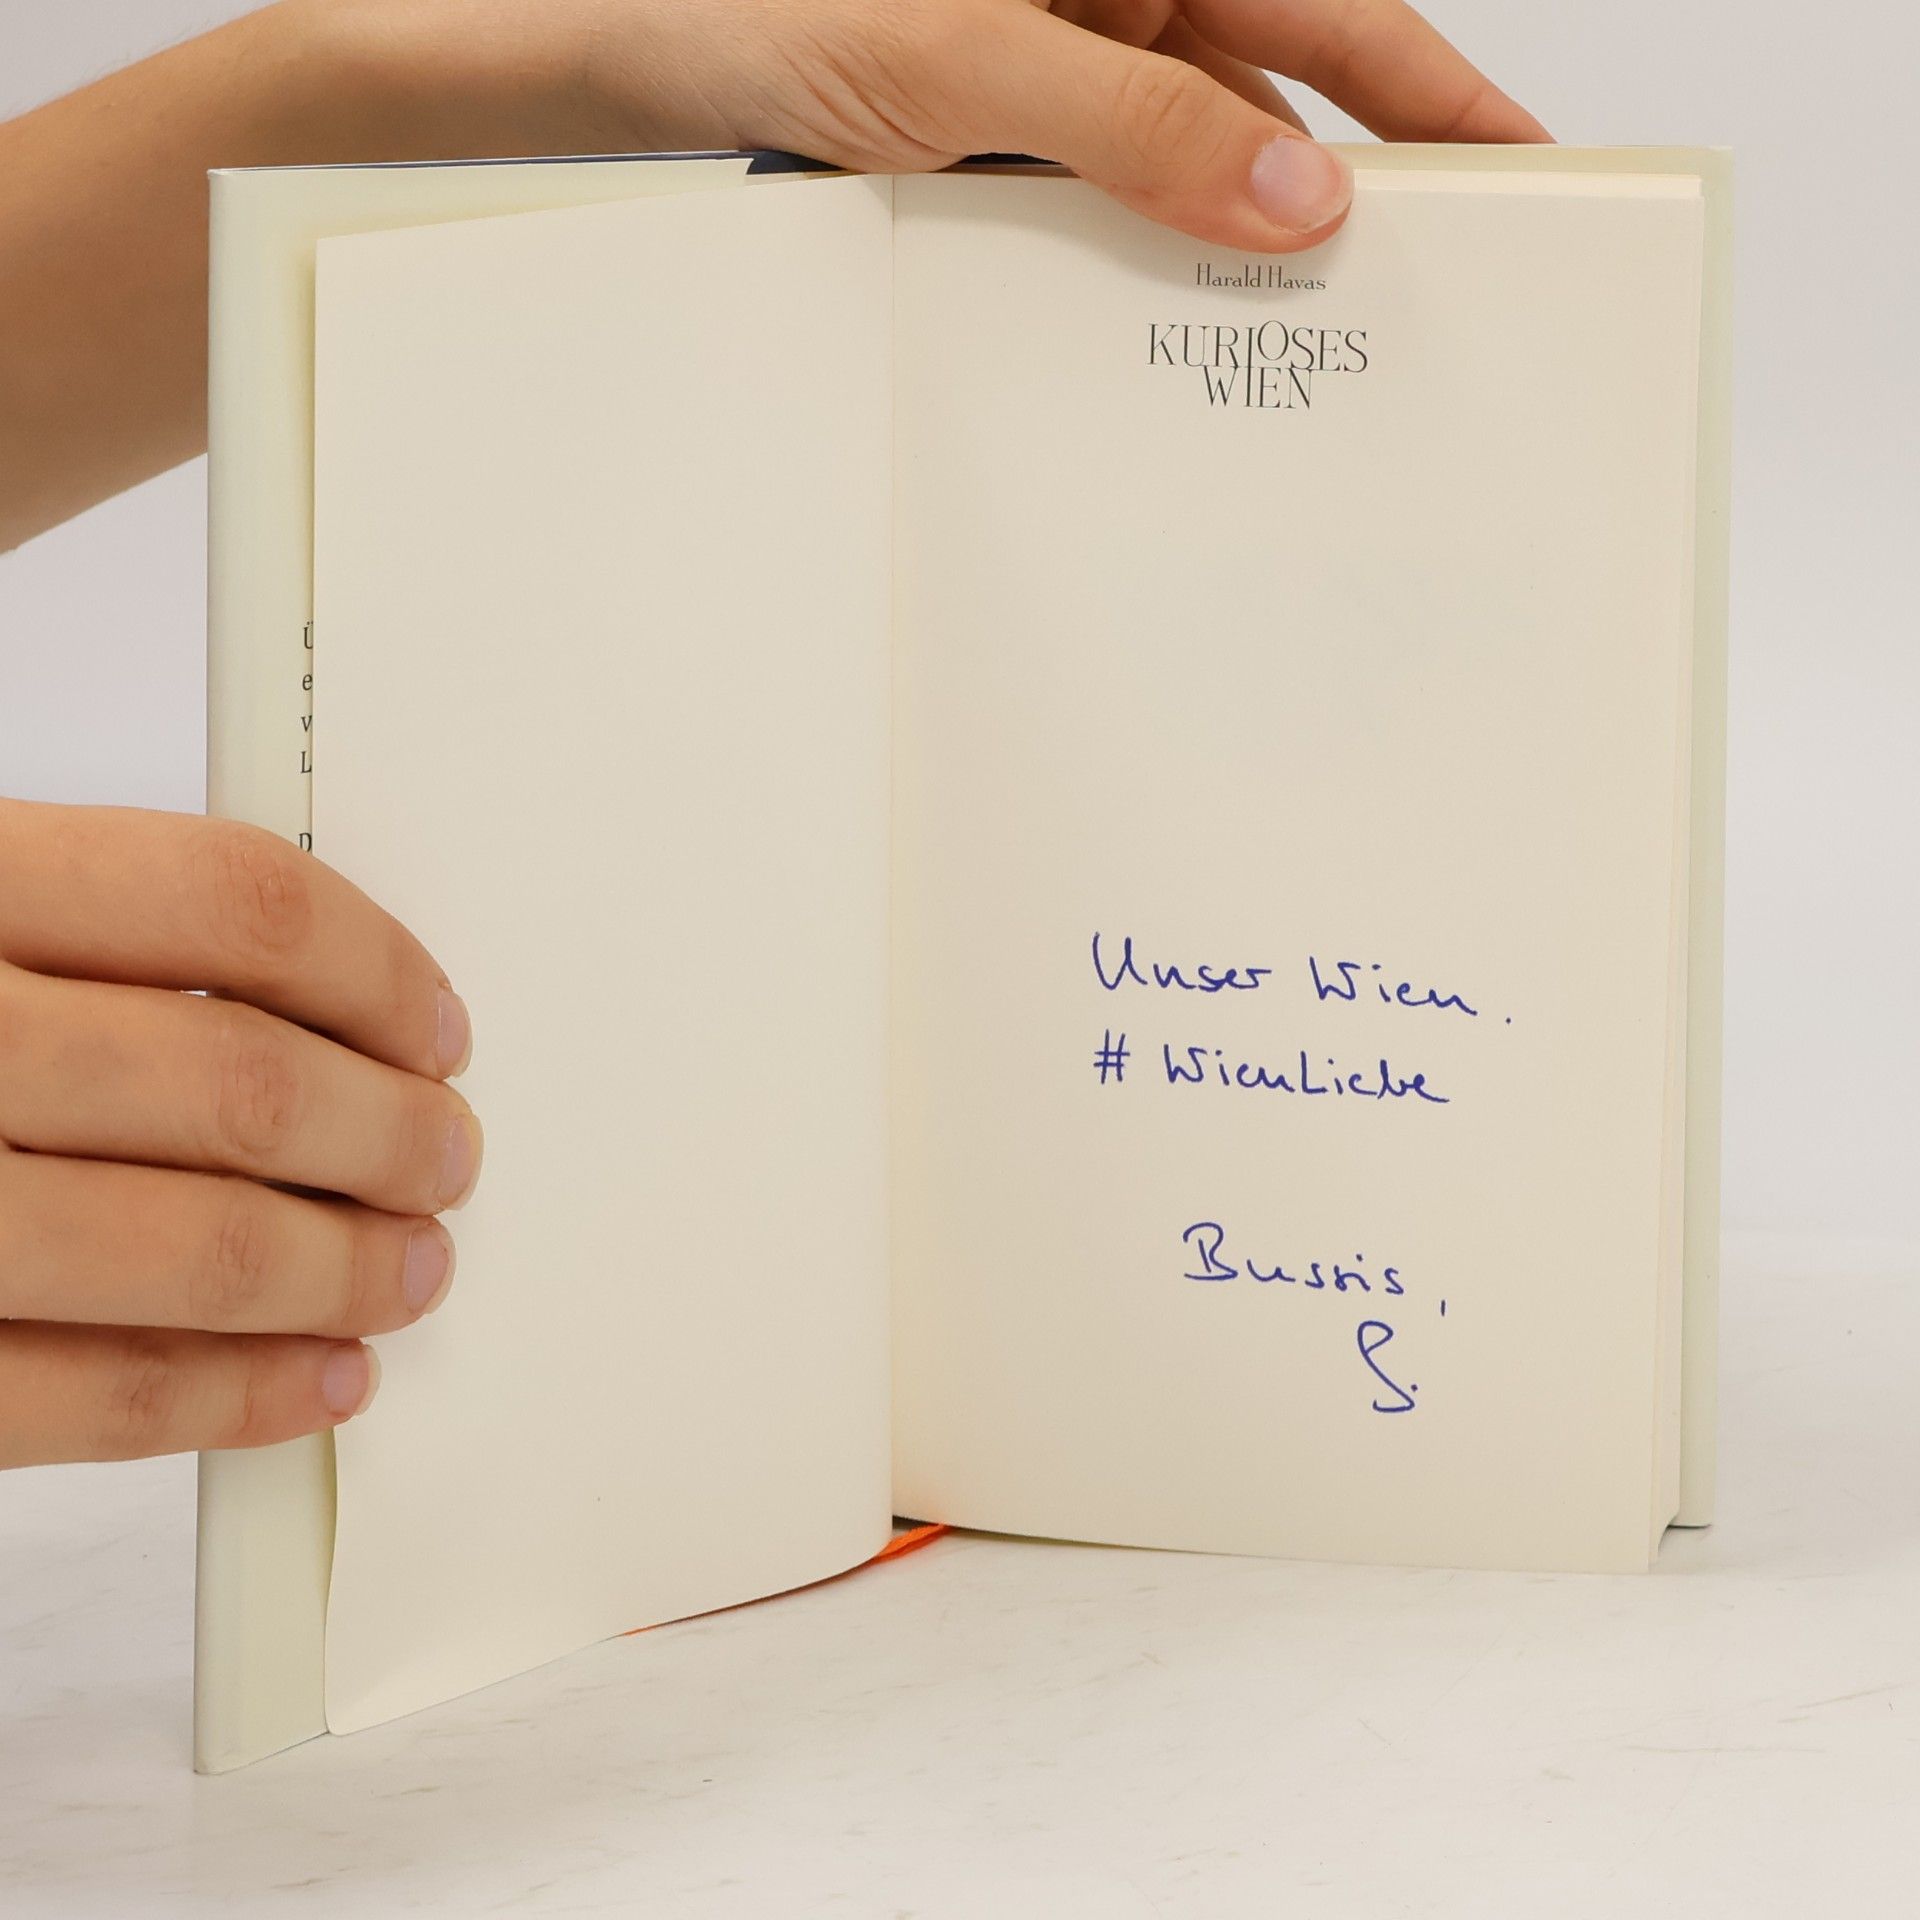 Ü
e
v
L
D
Harald Havas
KURIOSES
WIEN
Unser Wien.
# WienLiebe
Bussis,
S.